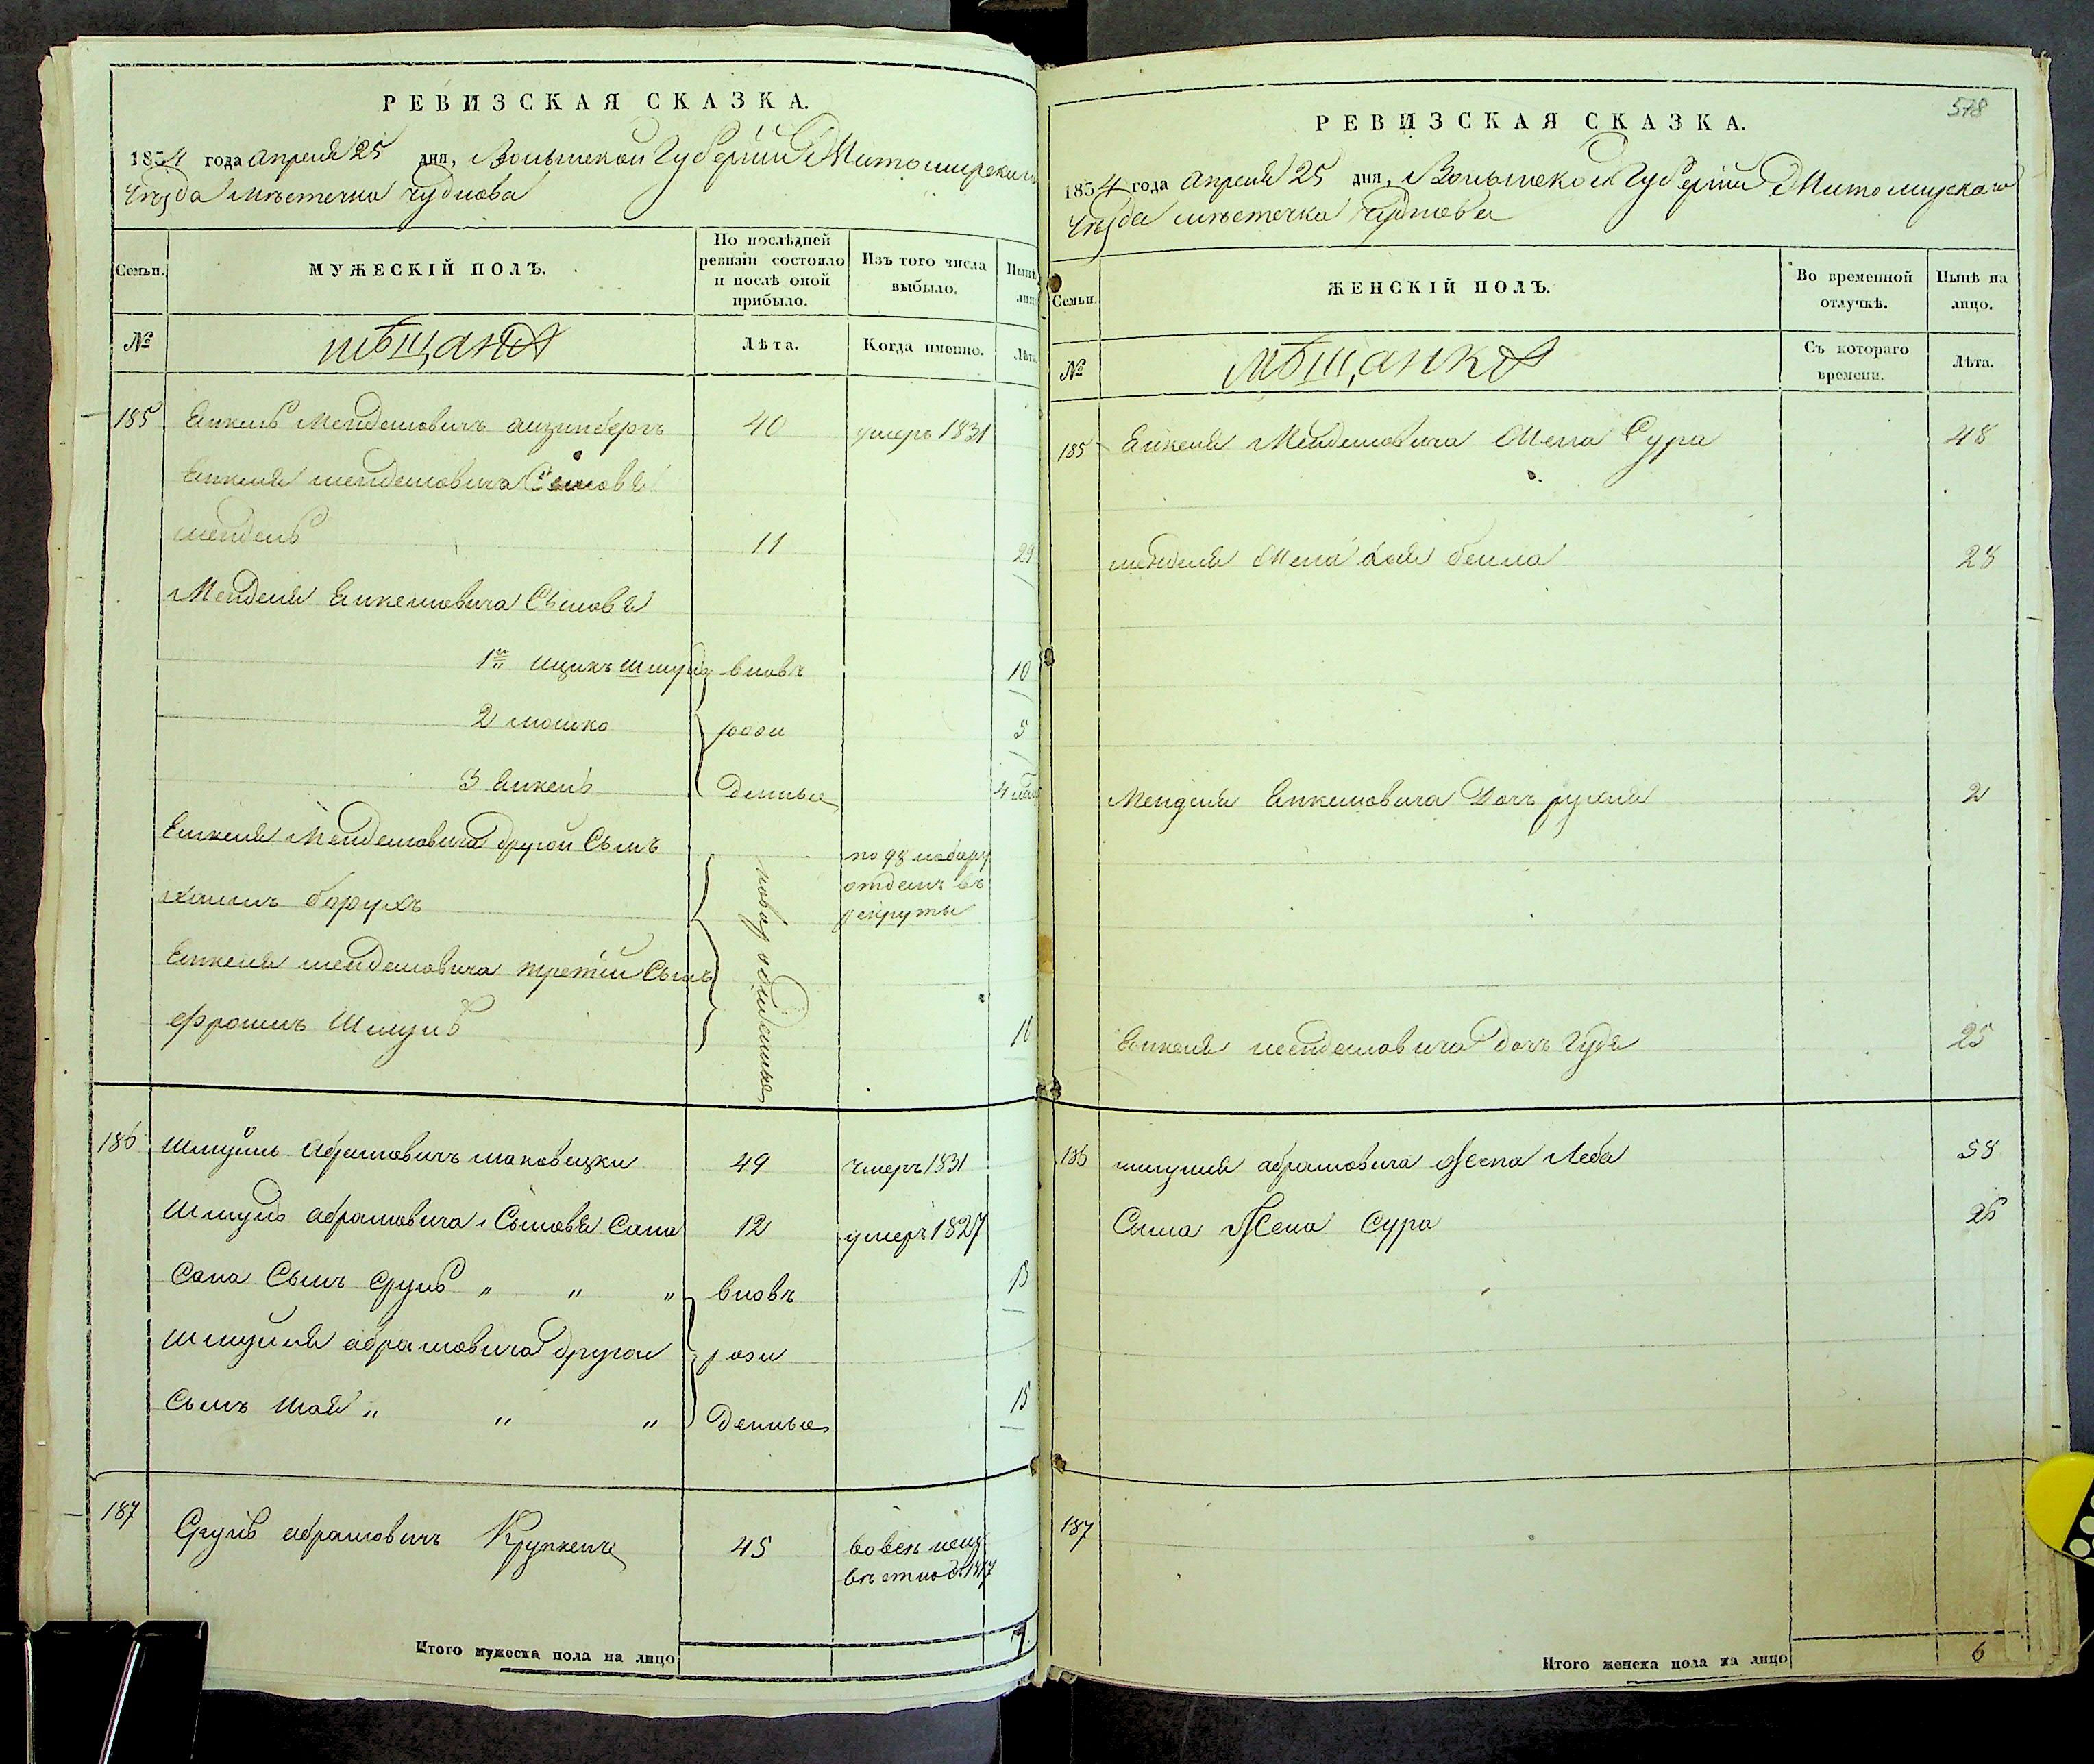 РЕВИЗСКАЯ СКАЗКА.
1834 года Апреля 25 дня, Волынской Губернии Житомирскаго
Уѣзда мѣстечка Чуднова
Семьи.
МУЖЕСКІЙ ПОЛЪ.
По послѣдней ревизіи состояло и послѣ оной прибыло.
Изъ того числа выбыло.
Нынѣ
лицо
№
мѣщанѣ
Лѣта.
Когда именно.
Лѣта
185 Янкель Менделовичъ 40 умеръ 1831
Янкеля менделовича Сыновья
мендель 11 29
Менделя Янкелевича Сыновья
1й ицикъ шмуль вновь 10
2 мошко рож 5
3 Янкель денные 4
Янкеля Менделовича другой Сынъ
хаимъ борухъ
по 98 набору
отданъ въ
рекруты
Янкеля менделовича третій Сынъ
Фроимъ Шмуль
186 Шмуйль Абрамовичъ маковецки 49 умеръ 1831
Шмуля абрамовича Сыновья Сапа 12 умеръ 1827
Сапа Сынъ Сруль " " " вновь 13
Шмуйля абрамовича другой рож
Сынъ Шая " " " денные 15
187 Сруль абрамовичъ 45
Итого мужеска пола на лицо 7
578
РЕВИЗСКАЯ СКАЗКА.
1834 года Апреля 25 дня, Волынской Губерніи Житомирскаго
Уѣзда мѣстечка Чуднова
Семьи.
ЖЕНСКІЙ ПОЛЪ.
Во временной отлучкѣ.
Нынѣ на лицо.
№
мѣщанкѣ
Съ котораго времени.
Лѣта.
185 Янкеля Менделовича Жена Сура 48
менделя Жена Хая бейла 28
Менделя Янкеловича Дочь рухля 2
Янкеля менделовича дочь Гудя 25
186 шмуйля абрамовича Жена Леба 58
Сына Жена Сура 26
187
Итого женска пола на лицо 6